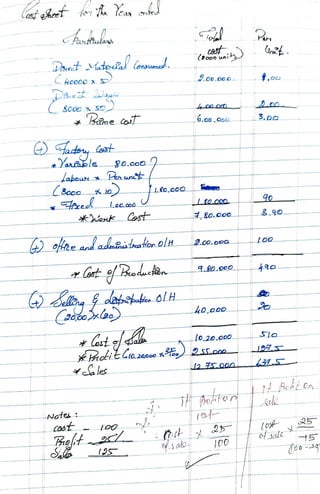 Cost sheet for the Year ended
Particulars Total cost (2000 units) Per Unit.
Direct Material Consumed.
(40000 x 5) 2.00.000
Direct Wages
(8000 x 50) 4.00.000 2.00
* Prime cost 6,00,000 3.00
(+) Factory Cost
* Variable 80.000
Labour * Per unit
(8000 x 10) 1,80,000
* Fixed 1,00.000 1.80.000 90
* Work Cost 7,80.000 3.90
(+) office and administration O/H 2.00.000 100
* Cost of Production 9.80.000 490
(+) Selling & distribution O/H
(2000 x 20) 40,000 20
* Cost of Sales 10.20.000 510
* Profit (10.20000 x 25/100) 2.55.000 127.5
* Sales 12.75.000 637.5
Notes:
cost - 100
Profit - 25/-
Sales 125
if profit on cost
25
100
if Profit on sale
cost of sale x 25
75